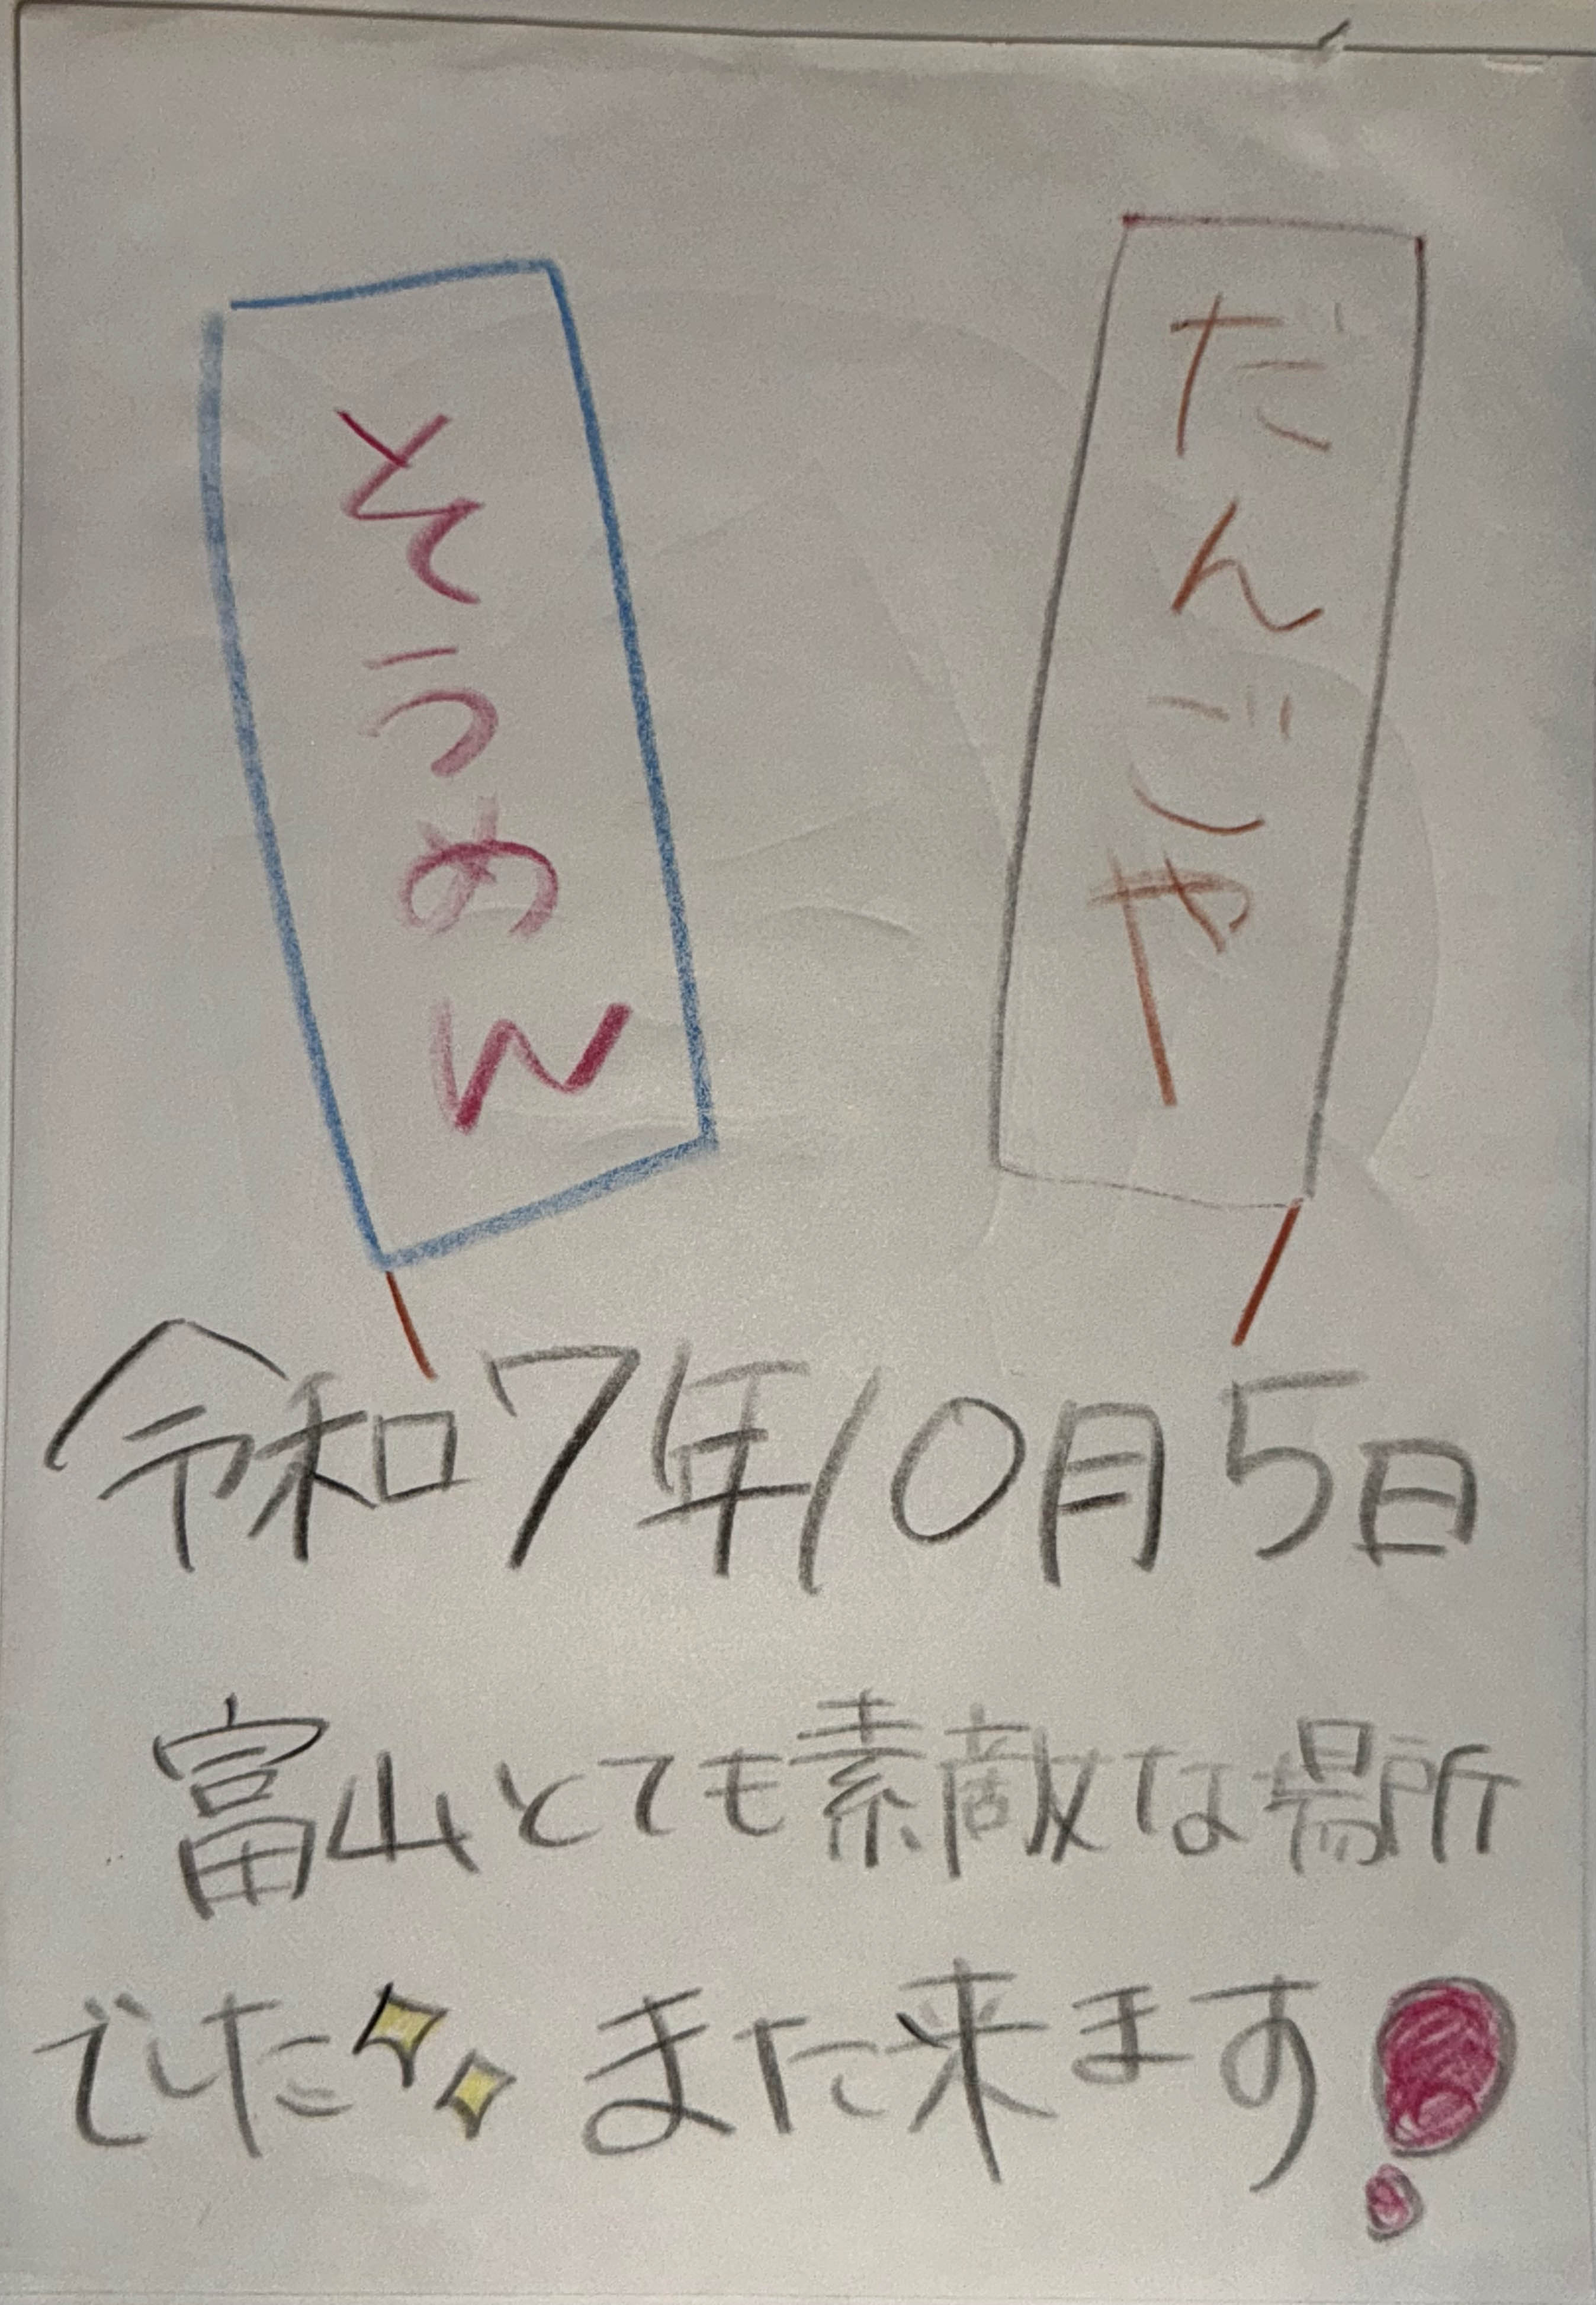 だんごや
そうめん
令和7年10月5日
富山とても素敵な場所
でした✨また来ます!